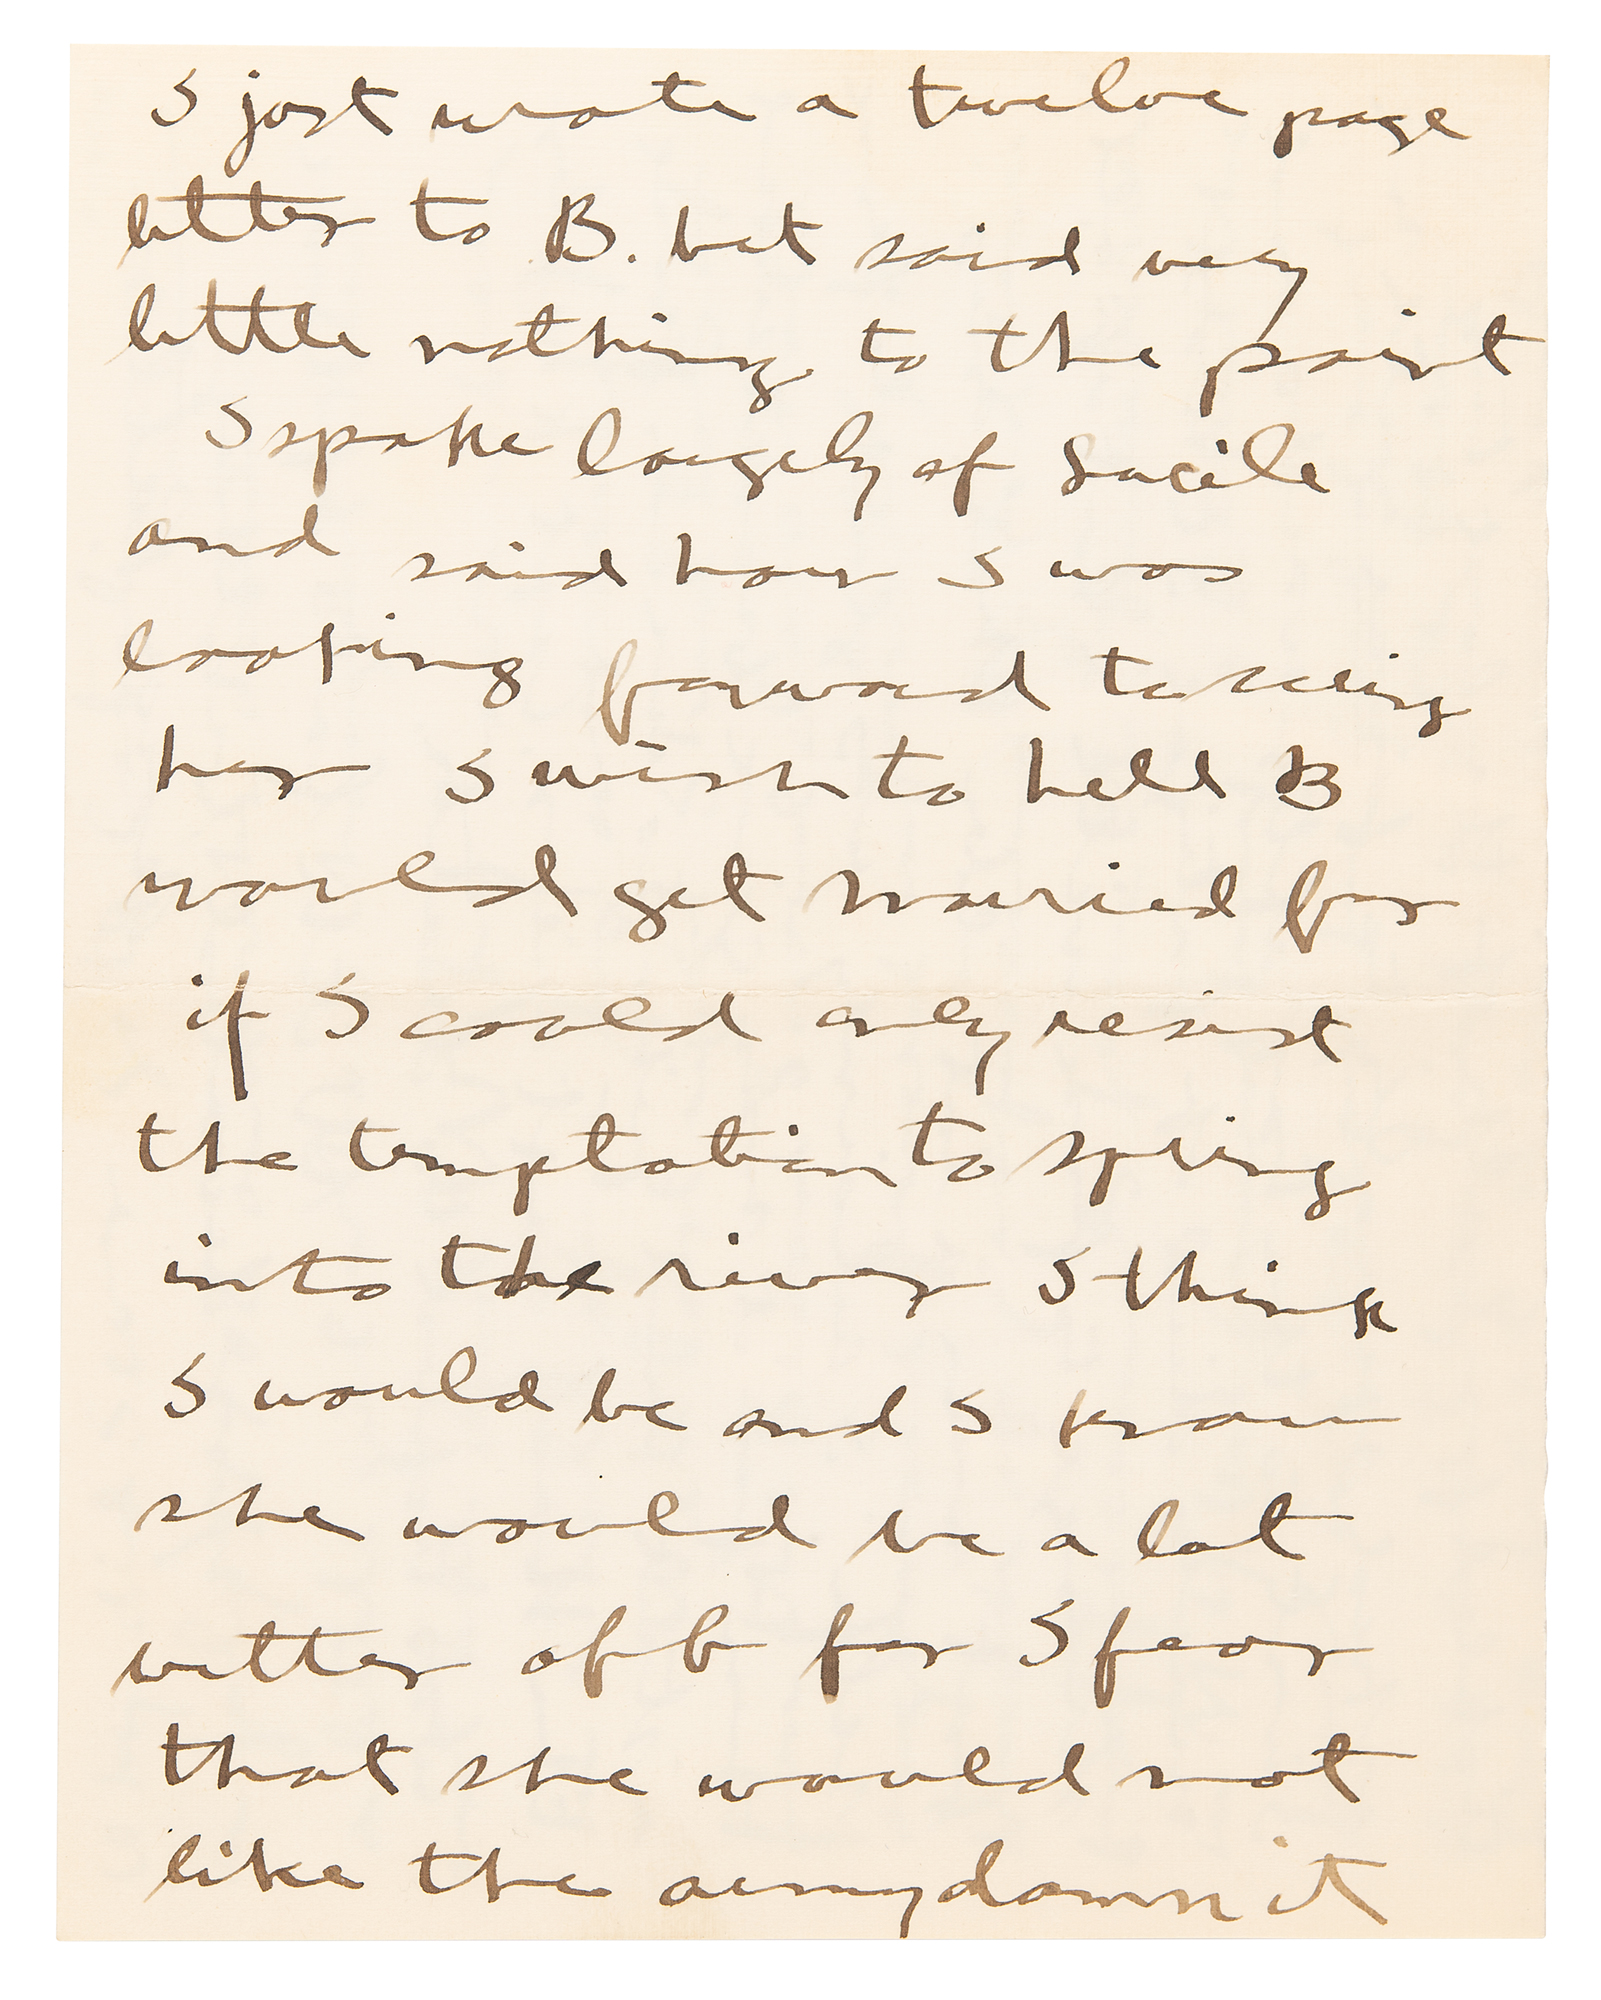 I just wrote a twelve page
letter to B. but said very
little nothing to the point
I spoke largely of Lucile
and said how I was
looking forward to seeing
her I wish to hell B
would get married for
if I could only resist
the temptation to spring
into the river I think
I would be and I know
she would be a lot
better off for I fear
that she would not
like the army damn it